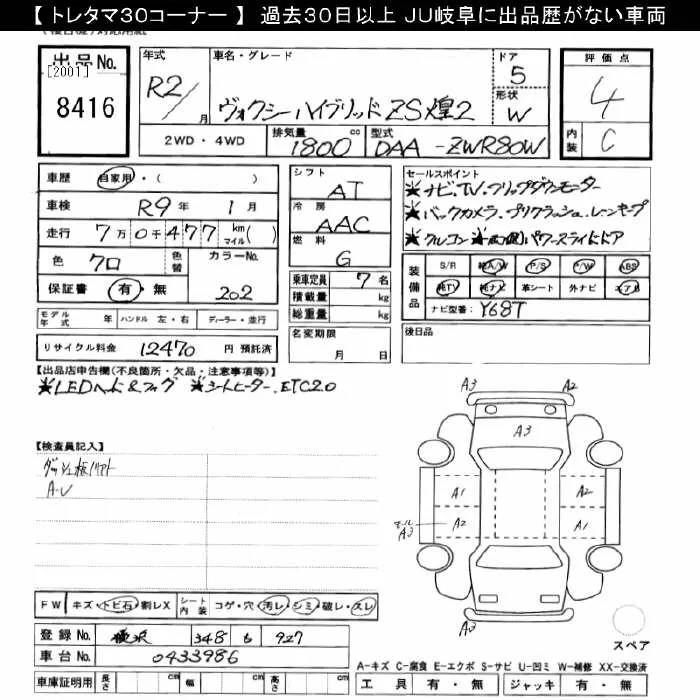 【 トレタマ30コーナー 】 過去30日以上 JU岐阜に出品歴がない車両
出品No. [2001] 8416
年式 R2/ 月
車名・グレード ヴォクシーハイブリッド ZS煌2
ドア 5
形状 W
評価点 4
内装 C
2WD ・ 4WD 排気量 1800 cc 型式 DAA -ZWR80W
車歴 自家用・( )
車検 R9年 1月
走行 7万0千477 km マイル( )
色 クロ 色替 カラーNo. 202
保証書 有・無
モデル年式 年 ハンドル 左・右 ディーラー・並行
リサイクル料金 12470 円 預託済
シフト AT
冷房 AAC
燃料 G
乗車定員 7 名
積載量 kg
総重量 kg
名変期限 月 日
セールスポイント
★ナビ.TV.フリップダウンモニター
★バックカメラ.プリクラッシュ.レーンキープ
★クルコン ★両側パワースライドドア
装備品 S/R 純A/W P/S P/W ABS
純TV 純ナビ 革シート 外ナビ エアB
ナビ型番: Y68T
後日品
【出品店申告欄(不良箇所・欠品・注意事項等)】
★LEDヘッド&フォグ ★シートヒーター.ETC2.0
【検査員記入】
A-U
A3 A2
A3
A1 A2
モール A3 A2 A1
A3
スペア
FW キズ・トビ石・割レX シート内装 コゲ・穴・汚レ・シミ・破レ・スレ
登録No. 348 927
車台No. 0433986
車庫証明用 長さ cm 幅 cm 高さ cm
A-キズ C-腐食 E-エクボ S-サビ U-凹ミ W-補修 XX-交換済
工具 有・無 ジャッキ 有・無